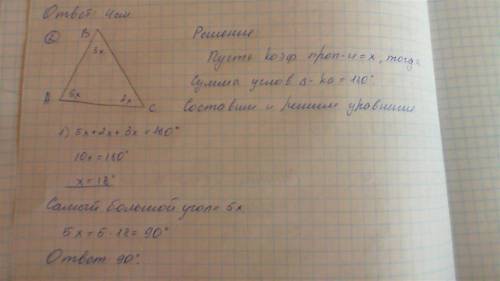 Ответ: 4см.
②
B
3x
A
5x
2x
C
Решение:
Пусть коэф. проп-и = x, тогда
Сумма углов Δ-ка = 180°
Составим и решим уравнение
1) 5x+2x+3x=180°
10x=180°
x=18°
Самый большой угол = 5x.
5x=5·18=90°
Ответ 90°.